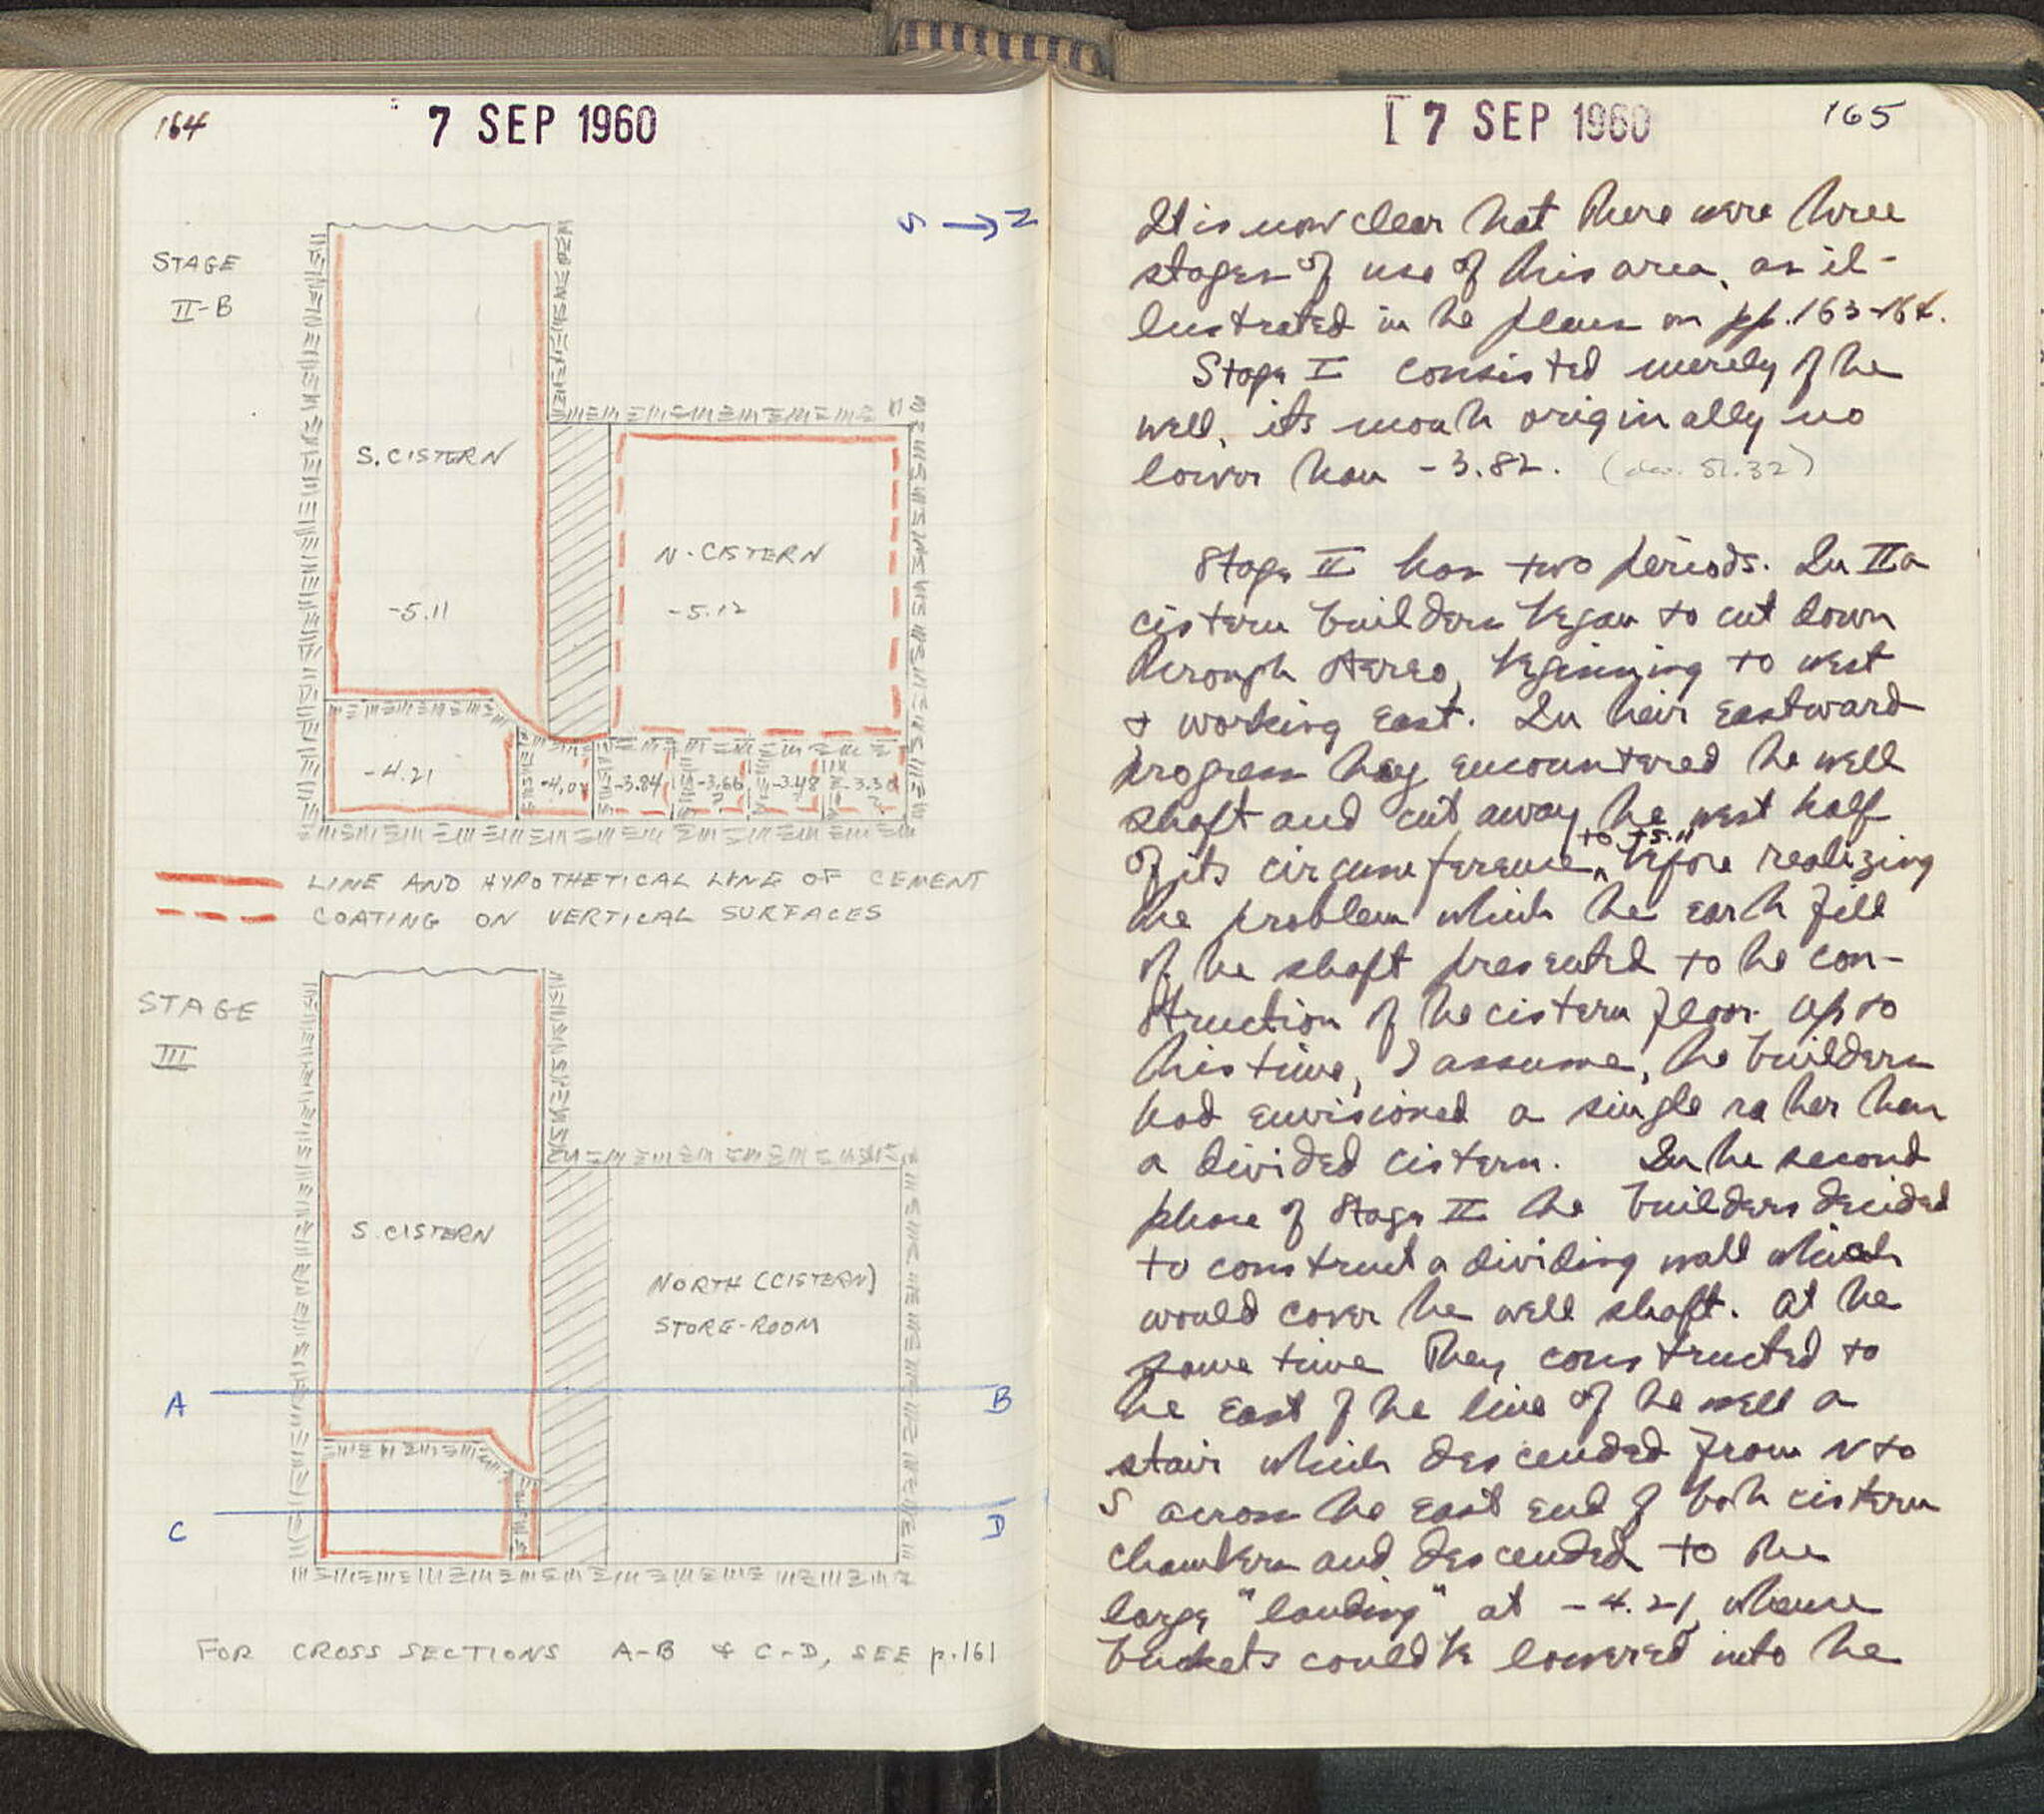 164
7 SEP 1960
S → N
STAGE
II-B
S. CISTERN
N-CISTERN
-5.11
-5.12
-4.21
-4.0
-3.84
-3.66
-3.48
-3.30
LINE AND HYPOTHETICAL LINE OF CEMENT
COATING ON VERTICAL SURFACES
STAGE
III
S. CISTERN
NORTH (CISTERN)
STORE-ROOM
A
B
C
D
FOR CROSS SECTIONS A-B & C-D, SEE p.161
7 SEP 1960
165
It is now clear that there were three
stages of use of this area, as il-
lustrated in the plans on pp. 163-164.
Stage I consisted merely of the
well, its mouth originally no
lower than -3.82. (51.32)
Stage II has two periods. In IIa
cistern builders began to cut down
through stereo, beginning to west
& working east. In their eastward
progress they encountered the well
shaft and cut away the west half
of its circumference, to -5.11 before realizing
the problem which the earth fill
of the shaft presented to the con-
struction of the cistern floor. Up to
this time, I assume, the builders
had envisioned a single rather than
a divided cistern. In the second
phase of Stage II the builders decided
to construct a dividing wall which
would cover the well shaft. At the
same time they constructed to
the east of the line of the well a
stair which descended from N to
S across the east end of both cistern
chambers and descended to the
large "landing" at -4.21, whence
buckets could be lowered into the